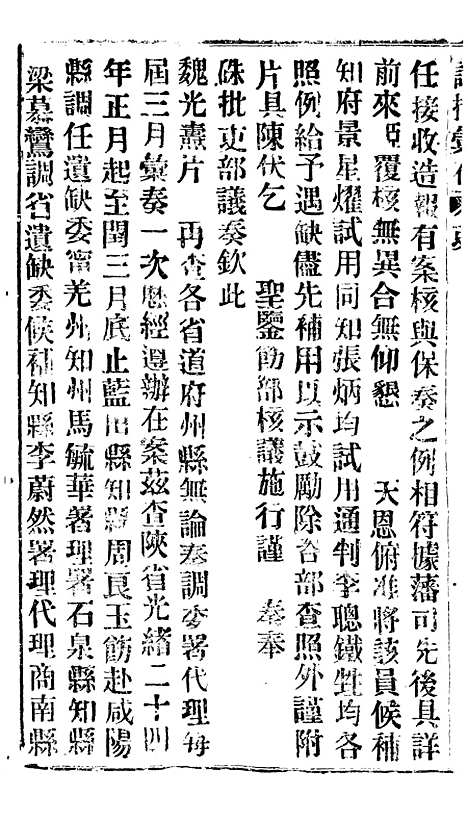 任接收造報有案核與保奏之例相符據藩司先後具詳
前來臣覆核無異合無仰懇　天恩俯准將該員候補
知府景星燿試用同知張炳均試用通判李聰鐵甡均各
照例給予遇缺儘先補用以示鼓勵除咨部查照外謹附
片具陳伏乞　聖鑒飭部核議施行謹　奏奉
硃批吏部議奏欽此
魏光燾片　再查各省道府州縣無論奏調委署代理每
屆三月彙奏一次歷經遵辦在案茲查陝省光緒二十四
年正月起至閏三月底止藍田縣知縣周良玉飭赴咸陽
縣調任遺缺委甯羌州知州馬毓華署理署石泉縣知縣
梁慕鸞調省遺缺委候補知縣李蔚然署理代理商南縣